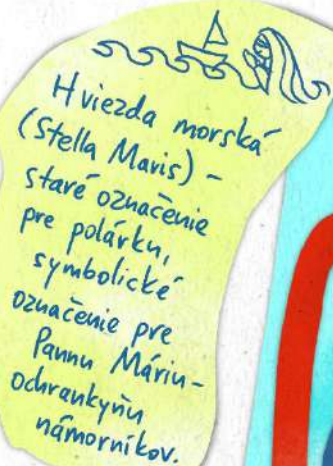 Hviezda morská
(Stella Maris) -
staré označenie
pre polárku,
symbolické
označenie pre
Pannu Máriu -
ochrankyňu
námorníkov.